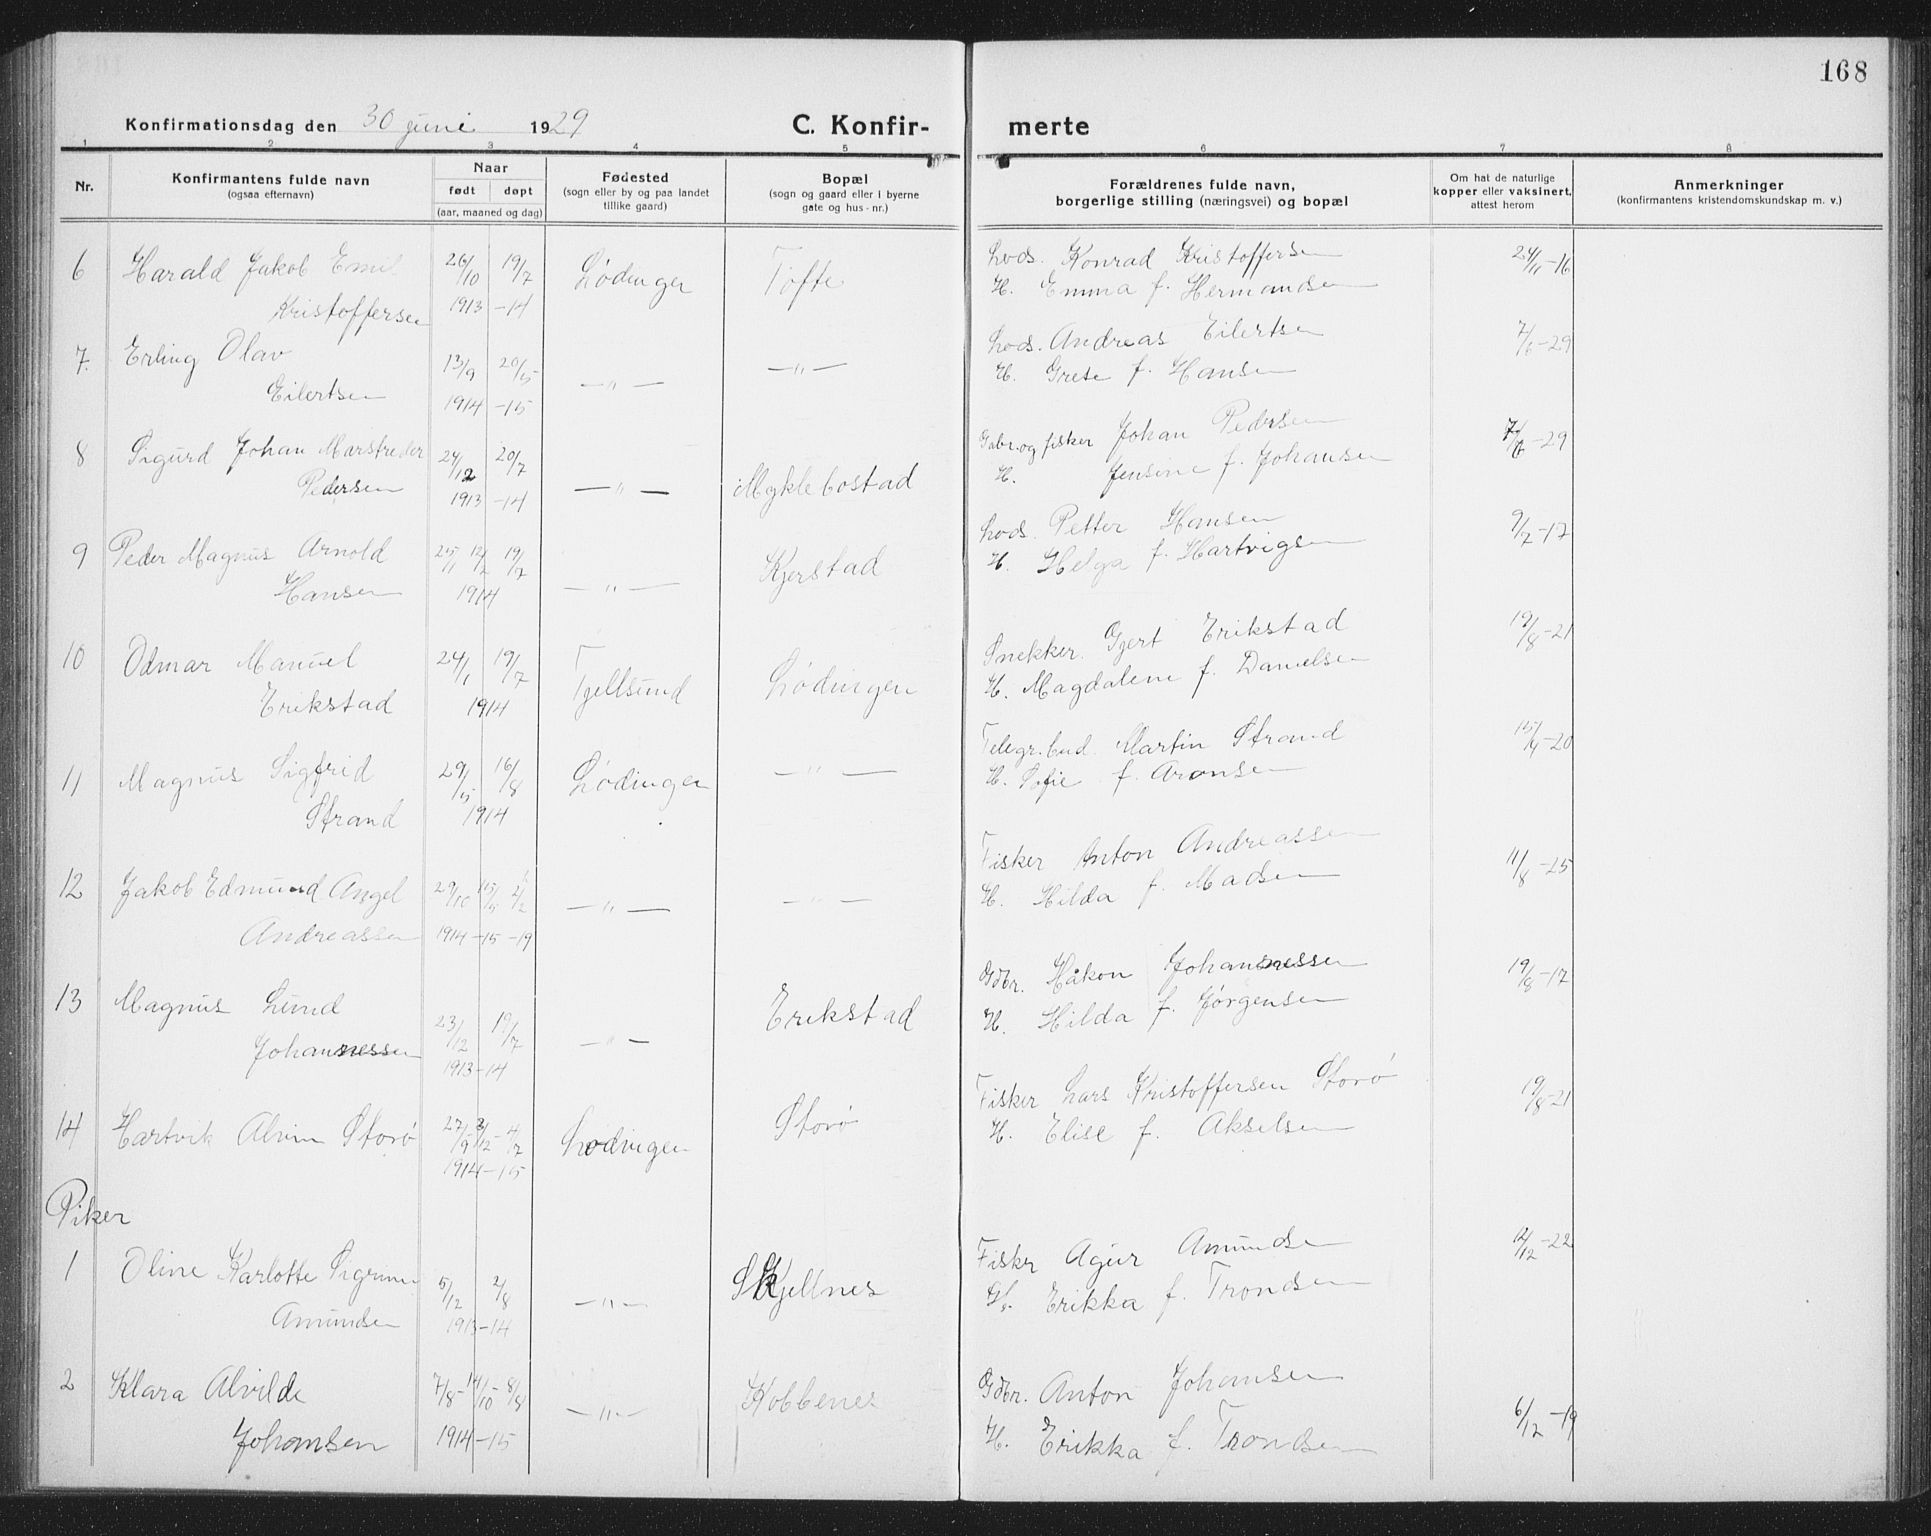 168
Konfirmationsdag den 30 juni 1929
C. Konfirmerte
1 2 3 4 5 6 7 8
Nr.
Konfirmantens fulde navn
(ogsaa efternavn)
Naar
født døpt
(aar, maaned og dag)
Fødested
(sogn eller by og paa landet
tillike gaard)
Bopæl
(sogn og gaard eller i byerne
gate og hus-nr.)
Forældrenes fulde navn,
borgerlige stilling (næringsvei) og bopæl
Om hat de naturlige
kopper eller vaksinert,
attest herom
Anmerkninger
(konfirmantens kristendomskundskap m. v.)
6 Harald Jakob Emil 26/10 19/7 Lødingen Tofte Lods. Konrad Kristoffersen 24/11-16
Kristoffersen 1913 -14 H. Emma f. Hermandsen
7. Erling Olav 13/9 20/5 -"- -"- Lods. Andreas Eilertsen 7/6-29
Eilertsen 1914 -15 H. Grete f. Hansen
8 Sigurd Johan Marstreder 24/12 20/7 -"- Myklebostad Gabr. og fisker Johan Pedersen 7/6-29
Pedersen 1913 -14 H. Jensine f. Johansen
9 Peder Magnus Arnold 25/1 12/2 19/7 -"- Kjerstad Lods. Petter Hansen 9/7-17
Hansen 1914 H. Helga f. Hartvigsen
10 Odmar Manuel 24/1 19/7 Tjellsund Lødingen Snekker. Gjert Erikstad 19/8-21
Erikstad 1914 H. Magdalene f. Danielsen
11 Magnus Sigfrid 29/5 16/8 Lødingen -"- Telegr.bud. Martin Strand 15/4-20
Strand 1914 H. Sofie f. Aronsen
12 Jakob Edmund Angel 29/10 15/5 2/2 -"- -"- Fisker Anton Andreassen 11/8-25
Andreassen 1914 -15 -19 H. Hilda f. Madsen
13 Magnus Lund 23/12 19/7 -"- Erikstad Gdbr. Håkon Johannessen 19/8-17
Johannessen 1913-14 H. Hilda f. Jørgensen
14 Hartvik Alvin Storø 27/9 3/12- 4/7 Lødingen Storø Fisker Lars Kristoffersen Storø 19/8-21
1914-15 H. Elise f. Akselsen
Piker
1 Oline Karlotte 5/12 2/8 -"- Skjellnes Fisker Agur Amundsen 12/12-22
Amundsen 1913-14 H. Erikka f. Trondsen
2 Klara Alvilde 7/8- 14/10- 8/8 -"- Kobbenes Gdbr. Anton Johansen 6/12-19
Johansen 1914-15 H. Erikka f. Trondsen